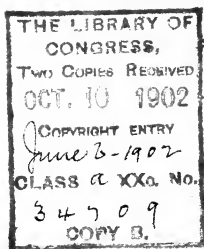 THE LIBRARY OF
CONGRESS,
TWO COPIES RECEIVED
OCT. 10 1902
COPYRIGHT ENTRY
June 3-1902
CLASS a XXc. No.
34709
COPY B.